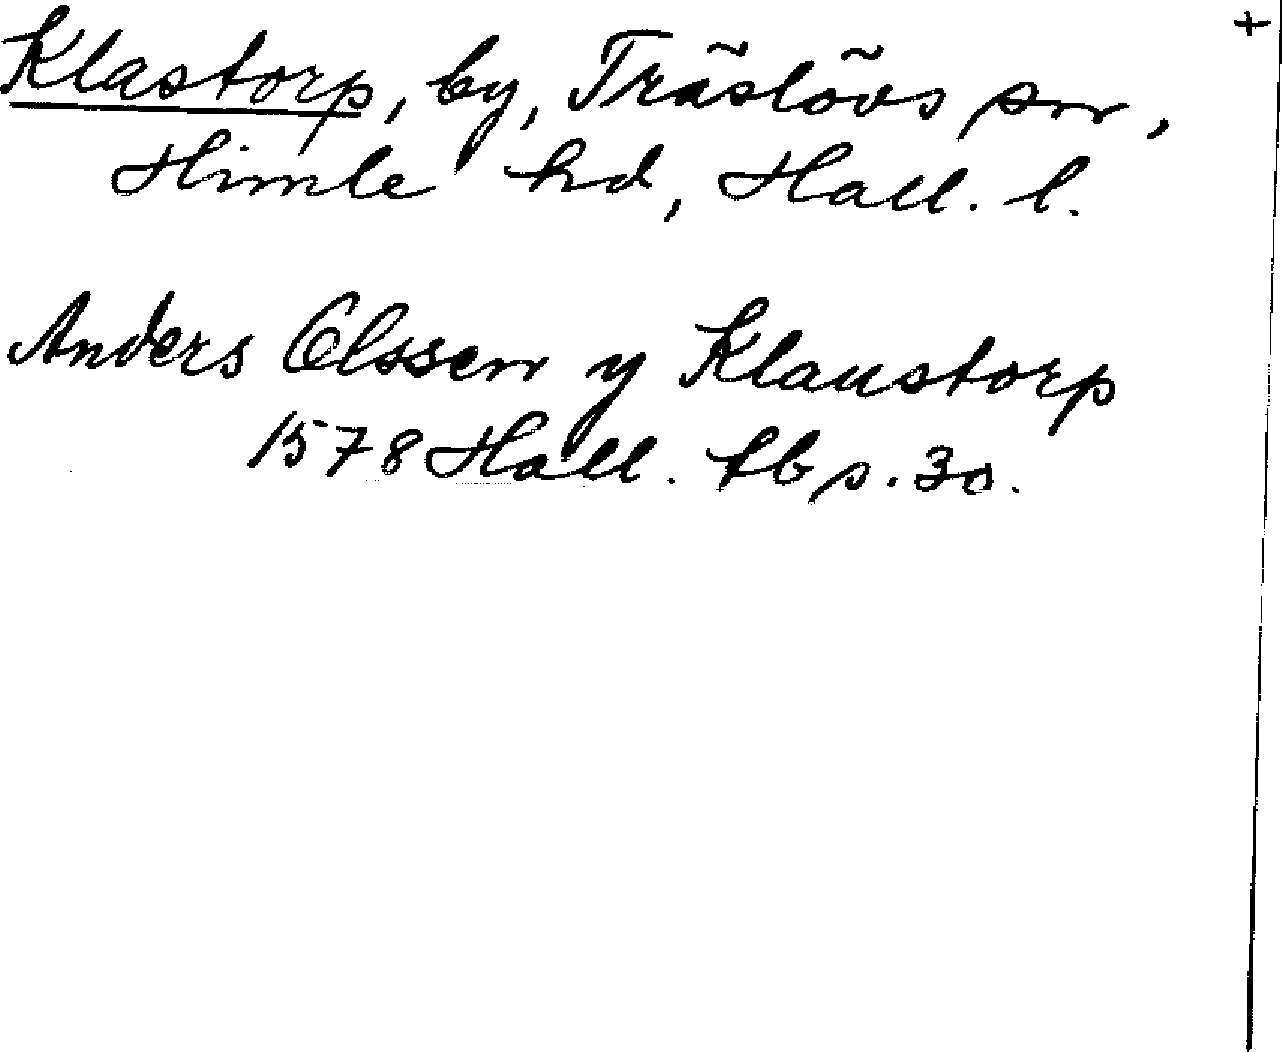 +
Klastorp, by, Träslövs sn,
Himle hd, Hall. l.
Anders Olssen y Klaustorp
1578 Hall. tb s. 30.